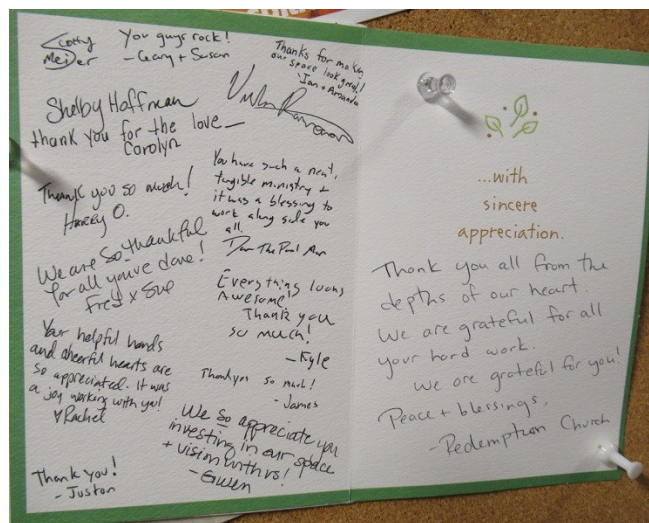 Scotty
Meider
You guys rock!
- Geary + Susan
Thanks for making
our space look great!
- Ian + Amanda
Shelby Hoffman
thank you for the love —
Carolyn
You have such a neat,
tangible ministry +
it was a blessing to
work along side you
all.
Thank you so much!
Harry O.
We are So thankful
for all you've done!
Fred x Sue
Everything looks
Awesome!
Thank you
so much!
- Kyle
Your helpful hands
and cheerful hearts are
so appreciated. It was
a joy working with you!
Rachel
Thankyou so much!
- James
We So appreciate you
investing in our space
+ vision with us!
- Gwen
Thank you!
- Juston
...with
sincere
appreciation.
Thank you all from the
depths of our heart.
We are grateful for all
your hard work.
We are grateful for you!
Peace + blessings,
- Redemption Church